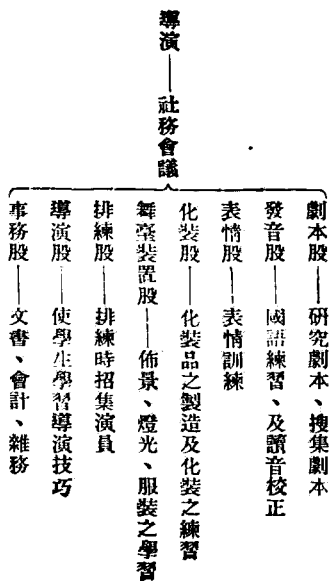 導演——社務會議
劇本股——研究劇本、搜集劇本
發音股——國語練習、及讀音校正
表情股——表情訓練
化裝股——化裝品之製造及化裝之練習
舞臺裝置股——佈景、燈光、服裝之學習
排練股——排練時招集演員
導演股——使學生學習導演技巧
事務股——文書、會計、雜務